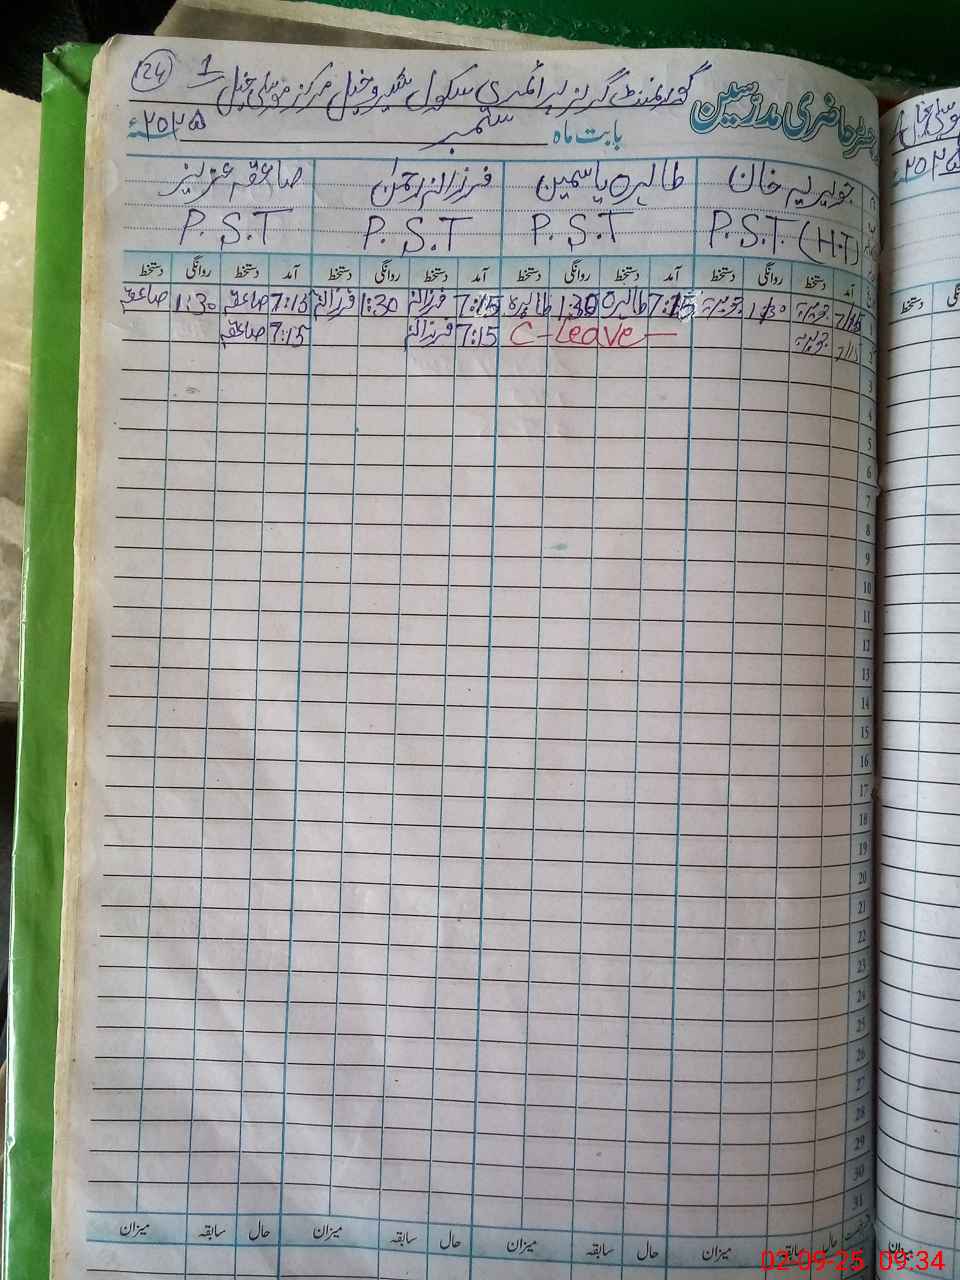 رجسٹر حاضری مدرسین گورنمنٹ گرلز پرائمری سکول شیرو خیل مرکز موسی خیل 1 (24)
بابت ماہ ستمبر ۲۰۲۵ء
جویریہ خان طاہرہ یاسمین فرزانہ رحمن صاعقہ عزیز
P.S.T.(H.T) P.S.T P.S.T P.S.T
آمد دستخط روانگی دستخط آمد دستخط روانگی دستخط آمد دستخط روانگی دستخط آمد دستخط روانگی دستخط
1 7/15 جویریہ 1:30 جویریہ 7:15 طاہرہ 1:30 طاہرہ 7:15 فرزانہ 1:30 فرزانہ 7:15 صاعقہ 1:30 صاعقہ
2 7/15 جویریہ C-Leave- 7:15 فرزانہ 7:15 صاعقہ
3
4
5
6
7
8
9
10
11
12
13
14
15
16
17
18
19
20
21
22
23
24
25
26
27
28
29
30
31
حال سابقہ میزان حال سابقہ میزان حال سابقہ میزان حال سابقہ میزان
موسی خیل
۲۰۲۵
دستخط
میزان
02-09-25 09:34